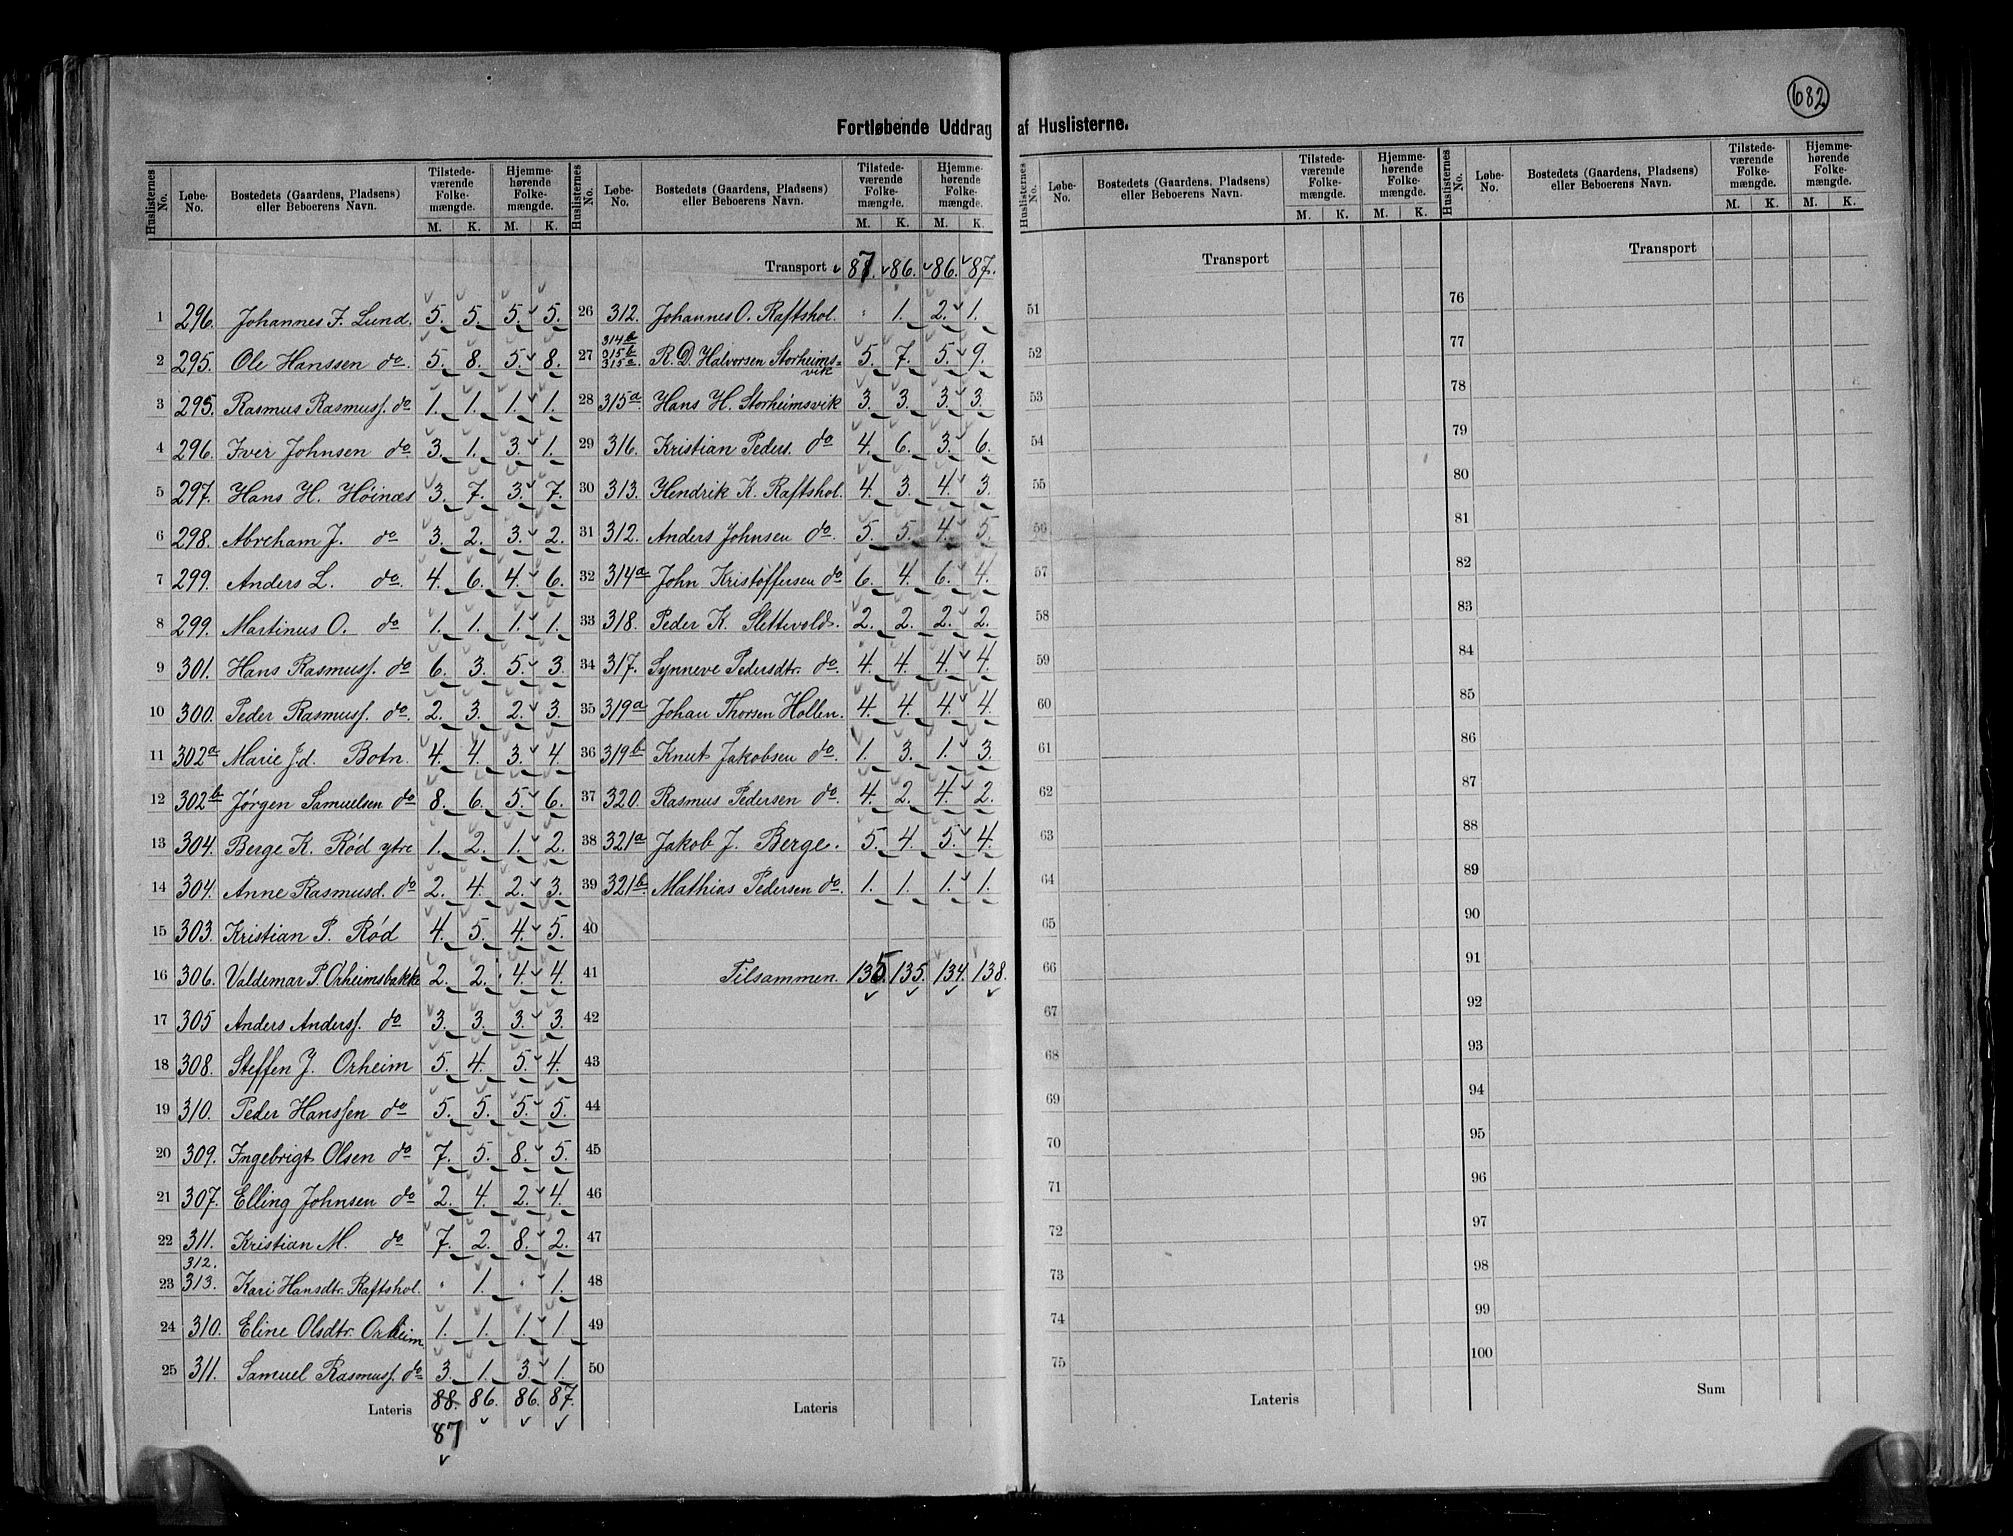 682
Fortløbende Uddrag af Huslisterne.
Huslisternes No. Løbe-No. Bostedets (Gaardens, Pladsens) eller Beboerens Navn. Tilstedeværende Folkemængde. M. K. Hjemmehørende Folkemængde. M. K.
1 296. Johannes F. Lund. 5. 5. 5. 5.
2 295. Ole Hanssen do. 5. 8. 5. 8.
3 295. Rasmus Rasmuss. do 1. 1. 1. 1.
4 296. Iver Johnsen do 3. 1. 3. 1.
5 297. Hans H. Höinæs 3. 7. 3. 7.
6 298. Abreham J. do 3. 2. 3. 2.
7 299. Anders L. do. 4. 6. 4. 6.
8 299. Martinus O. do 1. 1. 1. 1.
9 301. Hans Rasmuss. do 6. 3. 5. 3.
10 300. Peder Rasmuss. do. 2. 3. 2. 3.
11 302a Marie J.d. Botn. 4. 4. 3. 4.
12 302b Jørgen Samuelsen do 8. 6. 5. 6.
13 304. Berge K. Rød ytre 1. 2. 1. 2.
14 304. Anne Rasmusd. do 2. 4. 2. 3.
15 303. Kristian P. Rød 4. 5. 4. 5.
16 306. Valdemar P. Orheimsbakke 2. 2. 4. 4.
17 305 Anders Anderss. do 3. 3. 3. 3.
18 308. Steffen J. Orheim 5. 4. 5. 4.
19 310. Peder Hanssen do 5. 5. 5. 5.
20 309. Ingebrigt Olsen do 7. 5. 8. 5.
21 307. Elling Johnsen do 2. 4. 2. 4.
22 311. Kristian M. do 7. 2. 8. 2.
23 312. 313. Kari Hansdtr. Raftshol. " 1. " 1.
24 310. Eline Olsdtr. Orheim 1. 1. 1. 1.
25 311. Samuel Rasmuss. do 3. 1. 3. 1.
Lateris 88. 86. 86. 87.
87
Huslisternes No. Løbe-No. Bostedets (Gaardens, Pladsens) eller Beboerens Navn. Tilstedeværende Folkemængde. M. K. Hjemmehørende Folkemængde. M. K.
Transport 87. 86. 86. 87.
26 312. Johannes O. Raftshol. " 1. 2. 1.
27 314b 315b 315c R. D. Halvorsen Storheimsvik 5. 7. 5. 9.
28 315a Hans H. Storheimsvik 3. 3. 3. 3.
29 316. Kristian Peders. do 4. 6. 3. 6.
30 313. Hendrik K. Raftshol. 4. 3. 4. 3.
31 312. Anders Johnsen do. 5. 5. 4. 5.
32 314a John Kristoffersen do 6. 4. 6. 4.
33 318. Peder K. Slettvold. 2. 2. 2. 2.
34 317. Synneve Pedersdtr. do. 4. 4. 4. 4.
35 319a Johan Thorsen Hollen. 4. 4. 4. 4.
36 319b Knut Jakobsen do. 1. 3. 1. 3.
37 320. Rasmus Pedersen do. 4. 2. 4. 2.
38 321a Jakob J. Berge. 5. 4. 5. 4.
39 321b Mathias Pedersen do. 1. 1. 1. 1.
40
41 Tilsammen. 135. 135. 134. 138.
42
43
44
45
46
47
48
49
50
Lateris
Huslisternes No. Løbe-No. Bostedets (Gaardens, Pladsens) eller Beboerens Navn. Tilstedeværende Folkemængde. M. K. Hjemmehørende Folkemængde. M. K.
Transport
51
52
53
54
55
56
57
58
59
60
61
62
63
64
65
66
67
68
69
70
71
72
73
74
75
Lateris
Huslisternes No. Løbe-No. Bostedets (Gaardens, Pladsens) eller Beboerens Navn. Tilstedeværende Folkemængde. M. K. Hjemmehørende Folkemængde. M. K.
Transport
76
77
78
79
80
81
82
83
84
85
86
87
88
89
90
91
92
93
94
95
96
97
98
99
100
Sum